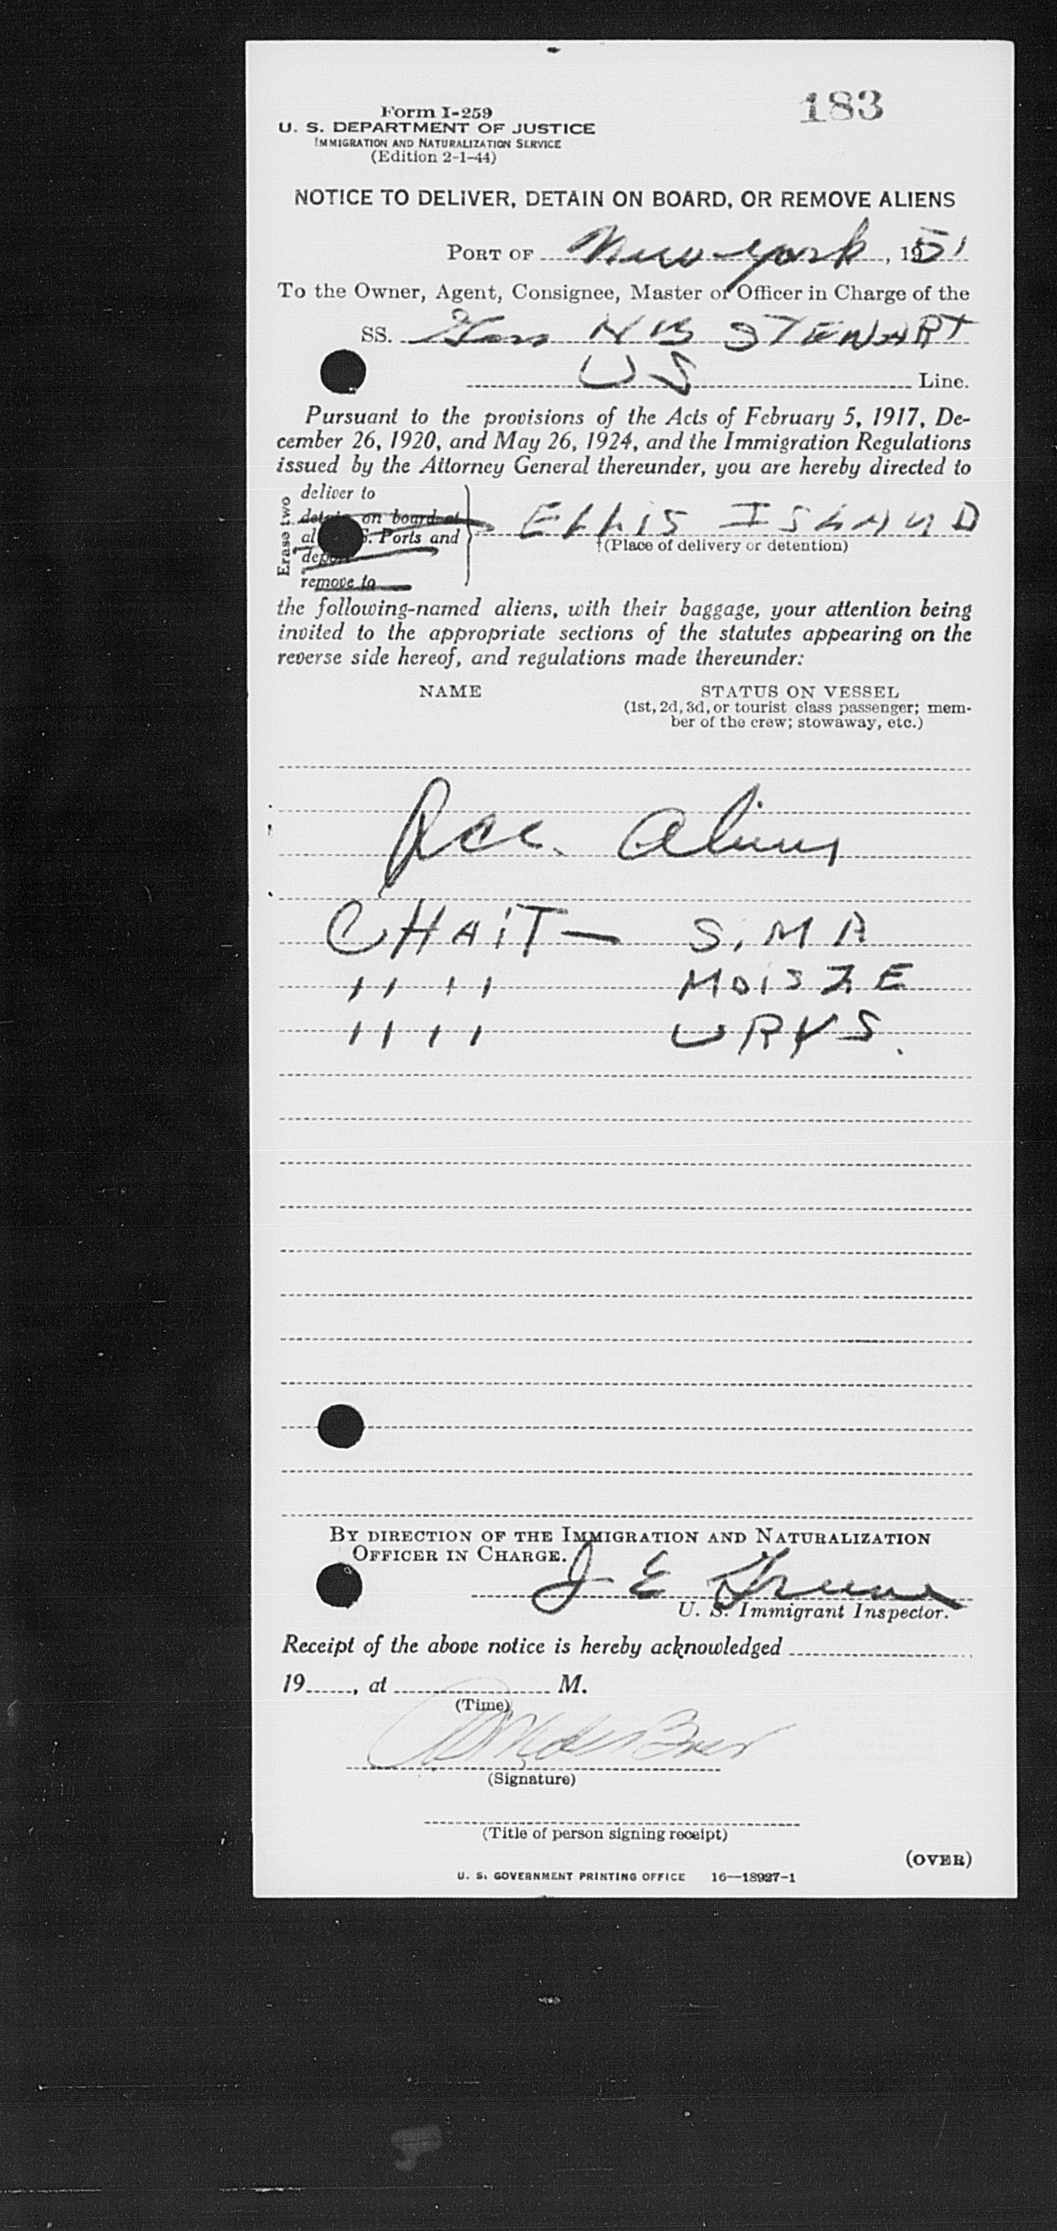 183
Form I-259
U. S. DEPARTMENT OF JUSTICE
IMMIGRATION AND NATURALIZATION SERVICE
(Edition 2-1-44)
NOTICE TO DELIVER, DETAIN ON BOARD, OR REMOVE ALIENS
PORT OF New York, 1951
To the Owner, Agent, Consignee, Master or Officer in Charge of the
SS. Gen M B STEWART
US Line.
Pursuant to the provisions of the Acts of February 5, 1917, De-
cember 26, 1920, and May 26, 1924, and the Immigration Regulations
issued by the Attorney General thereunder, you are hereby directed to
Erase two
deliver to
on board at
Ports and
remove to
ELLIS ISLAND
(Place of delivery or detention)
the following-named aliens, with their baggage, your attention being
invited to the appropriate sections of the statutes appearing on the
reverse side hereof, and regulations made thereunder:
NAME STATUS ON VESSEL
(1st, 2d, 3d, or tourist class passenger; mem-
ber of the crew; stowaway, etc.)
Aliens
CHAIT — SIMA
" " MOISZE
" " URYS.
BY DIRECTION OF THE IMMIGRATION AND NATURALIZATION
OFFICER IN CHARGE.
J E Greene
U. S. Immigrant Inspector.
Receipt of the above notice is hereby acknowledged
19, at M.
(Time)
(Signature)
(Title of person signing receipt)
(OVER)
U. S. GOVERNMENT PRINTING OFFICE 16—18927-1